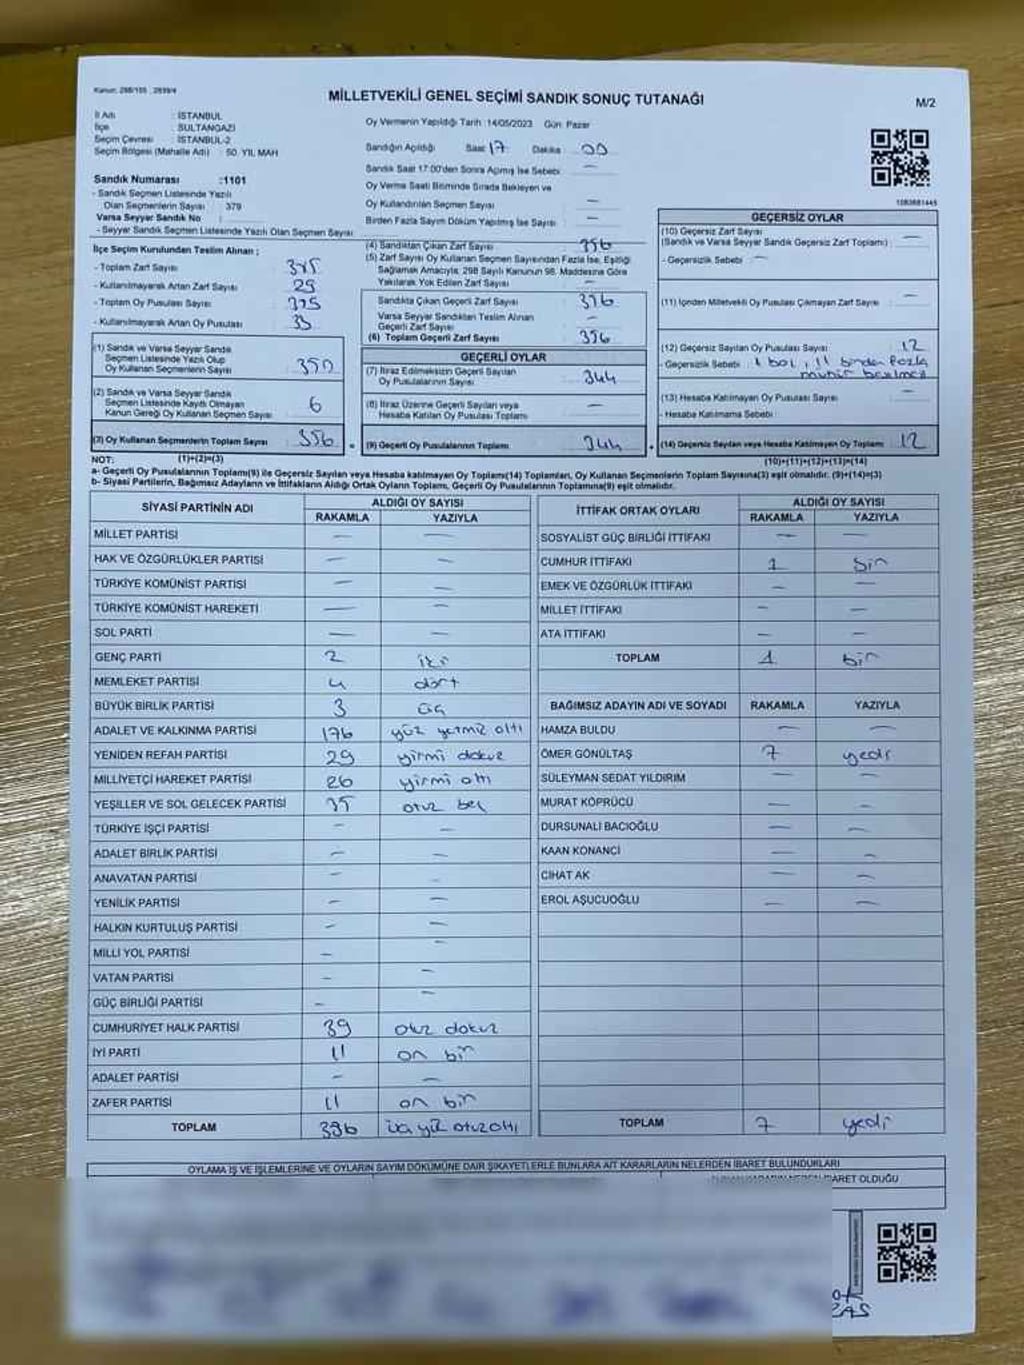 Kanun: 298/105 , 2839/4
MİLLETVEKİLİ GENEL SEÇİMİ SANDIK SONUÇ TUTANAĞI
M/2
İl Adı : İSTANBUL
İlçe : SULTANGAZİ
Seçim Çevresi : İSTANBUL-2
Seçim Bölgesi (Mahalle Adı) : 50. YIL MAH
Oy Vermenin Yapıldığı Tarih :14/05/2023 Gün: Pazar
Sandığın Açıldığı Saat 17 Dakika 00
Sandık Saat 17:00'den Sonra Açımış İse Sebebi —
Oy Verme Saati Bitiminde Sırada Bekleyen ve
Oy Kullandırılan Seçmen Sayısı —
Birden Fazla Sayım Döküm Yapılmış İse Sayısı —
Sandık Numarası :1101
- Sandık Seçmen Listesinde Yazılı
Olan Seçmenlerin Sayısı : 379
Varsa Seyyar Sandık No :
- Seyyar Sandık Seçmen Listesinde Yazılı Olan Seçmen Sayısı
İlçe Seçim Kurulundan Teslim Alınan ;
- Toplam Zarf Sayısı 385
- Kullanılmayarak Artan Zarf Sayısı 29
- Toplam Oy Pusulası Sayısı
- Kullanılmayarak Artan Oy Pusulası
(1) Sandık ve Varsa Seyyar Sandık
Seçmen Listesinde Yazılı Olup
Oy Kullanan Seçmenlerin Sayısı 350
(2) Sandık ve Varsa Seyyar Sandık
Seçmen Listesinde Kayıtlı Olmayan
Kanun Gereği Oy Kullanan Seçmen Sayısı 6
(3) Oy Kullanan Seçmenlerin Toplam Sayısı 356
(1)+(2)=(3)
(4) Sandıktan Çıkan Zarf Sayısı 356
(5) Zarf Sayısı Oy Kullanan Seçmen Sayısından Fazla İse, Eşitliği
Sağlamak Amacıyla; 298 Sayılı Kanunun 98. Maddesine Göre
Yakılarak Yok Edilen Zarf Sayısı —
Sandıkta Çıkan Geçerli Zarf Sayısı 356
Varsa Seyyar Sandıktan Teslim Alınan
Geçerli Zarf Sayısı —
(6) Toplam Geçerli Zarf Sayısı 356
GEÇERLİ OYLAR
(7) İtiraz Edilmeksizin Geçerli Sayılan
Oy Pusulalarının Sayısı 344
(8) İtiraz Üzerine Geçerli Sayılan veya
Hesaba Katılan Oy Pusulası Toplamı —
(9) Geçerli Oy Pusulalarının Toplamı 344
1083681445
GEÇERSİZ OYLAR
(10) Geçersiz Zarf Sayısı
(Sandık ve Varsa Seyyar Sandık Geçersiz Zarf Toplamı) —
- Geçersizlik Sebebi —
(11) İçinden Milletvekili Oy Pusulası Çıkmayan Zarf Sayısı —
(12) Geçersiz Sayılan Oy Pusulası Sayısı 12
- Geçersizlik Sebebi 1 boş, 11 birden fazla
mühür basılması
(13) Hesaba Katılmayan Oy Pusulası Sayısı —
- Hesaba Katılmama Sebebi
(14) Geçersiz Sayılan veya Hesaba Katılmayan Oy Toplamı 12
(10)+(11)+(12)+(13)=(14)
NOT:
a- Geçerli Oy Pusulalarının Toplamı(9) ile Geçersiz Sayılan veya Hesaba katılmayan Oy Toplamı(14) Toplamları, Oy Kullanan Seçmenlerin Toplam Sayısına(3) eşit olmalıdır. (9)+(14)=(3)
b- Siyasi Partilerin, Bağımsız Adayların ve İttifakların Aldığı Ortak Oyların Toplamı, Geçerli Oy Pusulalarının Toplamına(9) eşit olmalıdır.
SİYASİ PARTİNİN ADI
ALDIĞI OY SAYISI
RAKAMLA YAZIYLA
MİLLET PARTİSİ — —
HAK VE ÖZGÜRLÜKLER PARTİSİ — —
TÜRKİYE KOMÜNİST PARTİSİ — —
TÜRKİYE KOMÜNİST HAREKETİ — —
SOL PARTİ — —
GENÇ PARTİ 2 iki
MEMLEKET PARTİSİ 4 dört
BÜYÜK BİRLİK PARTİSİ 3 üç
ADALET VE KALKINMA PARTİSİ 176 yüz yetmiş altı
YENİDEN REFAH PARTİSİ 29 yirmi dokuz
MİLLİYETÇİ HAREKET PARTİSİ 26 yirmi altı
YEŞİLLER VE SOL GELECEK PARTİSİ 35 otuz beş
TÜRKİYE İŞÇİ PARTİSİ — —
ADALET BİRLİK PARTİSİ — —
ANAVATAN PARTİSİ — —
YENİLİK PARTİSİ — —
HALKIN KURTULUŞ PARTİSİ — —
MİLLİ YOL PARTİSİ — —
VATAN PARTİSİ — —
GÜÇ BİRLİĞİ PARTİSİ — —
CUMHURİYET HALK PARTİSİ 39 otuz dokuz
İYİ PARTİ 11 on bir
ADALET PARTİSİ — —
ZAFER PARTİSİ 11 on bir
TOPLAM 336 üç yüz otuz altı
İTTİFAK ORTAK OYLARI
ALDIĞI OY SAYISI
RAKAMLA YAZIYLA
SOSYALİST GÜÇ BİRLİĞİ İTTİFAKI — —
CUMHUR İTTİFAKI 1 bir
EMEK VE ÖZGÜRLÜK İTTİFAKI — —
MİLLET İTTİFAKI — —
ATA İTTİFAKI — —
TOPLAM 1 bir
BAĞIMSIZ ADAYIN ADI VE SOYADI RAKAMLA YAZIYLA
HAMZA BULDU — —
ÖMER GÖNÜLTAŞ 7 yedi
SÜLEYMAN SEDAT YILDIRIM — —
MURAT KÖPRÜCÜ — —
DURSUNALİ BACIOĞLU — —
KAAN KONANCI — —
CİHAT AK — —
EROL AŞUCUOĞLU — —
TOPLAM 7 yedi
OYLAMA İŞ VE İŞLEMLERİNE VE OYLARIN SAYIM DÖKÜMÜNE DAİR ŞİKAYETLERLE BUNLARA AİT KARARLARIN NELERDEN İBARET BULUNDUKLARI
İBARET OLDUĞU